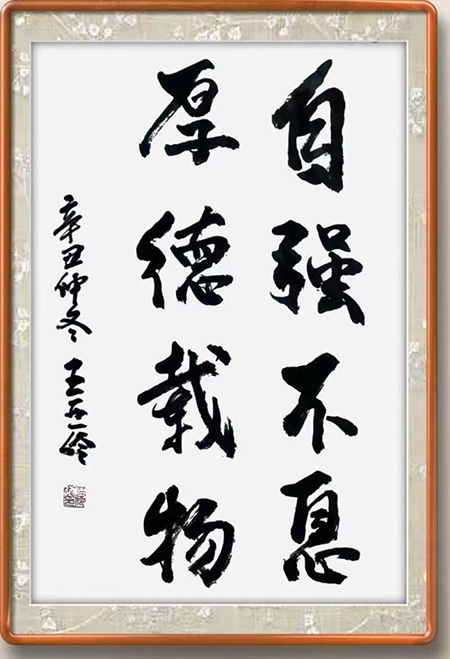 自强不息
厚德载物
辛丑仲冬 王